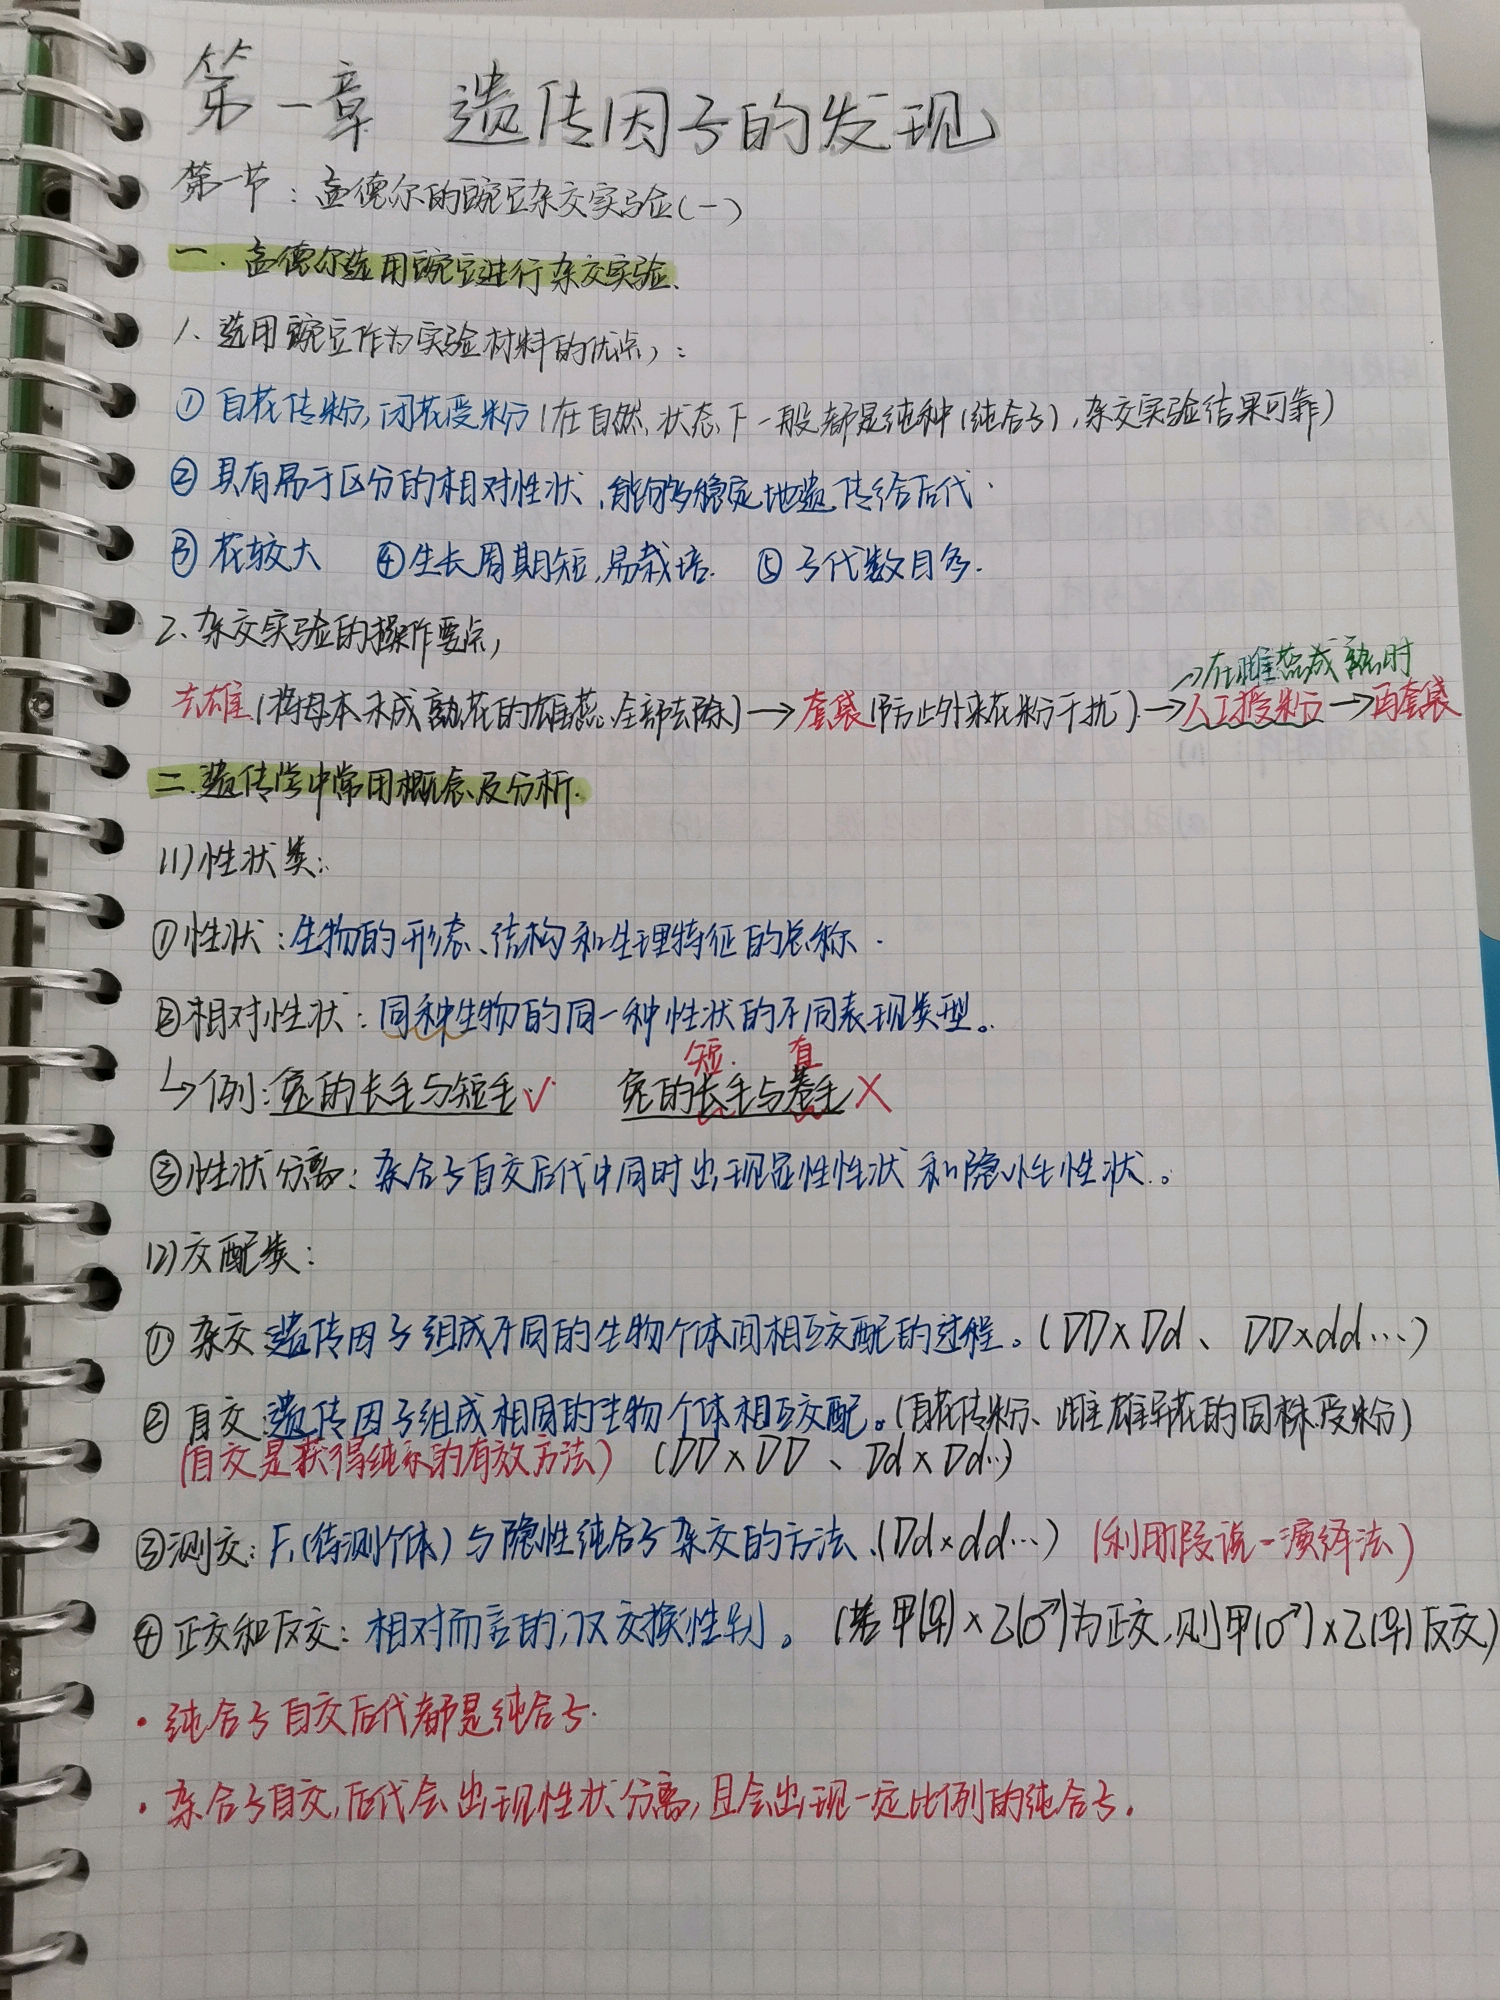 第一章 遗传因子的发现
第一节：孟德尔的豌豆杂交实验(一)
一.孟德尔选用豌豆进行杂交实验.
1、选用豌豆作为实验材料的优点：
①自花传粉,闭花受粉(在自然状态下一般都是纯种(纯合子),杂交实验结果可靠)
②具有易于区分的相对性状,能够稳定地遗传给后代.
③花较大 ④生长周期短,易栽培. ⑤子代数目多.
2、杂交实验的操作要点,
→在雌蕊成熟时
去雄(将母本未成熟花的雄蕊全部去除)→套袋(防止外来花粉干扰)→人工授粉→再套袋
二.遗传学中常用概念及分析.
(1)性状类:
①性状:生物的形态、结构和生理特征的总称.
②相对性状:同种生物的同一种性状的不同表现类型。
短. 直
↳例:兔的长毛与短毛√ 兔的长毛与卷毛×
③性状分离:杂合子自交后代中同时出现显性性状和隐性性状。
(2)交配类:
①杂交:遗传因子组成不同的生物个体间相互交配的过程。(DD×Dd、DD×dd…)
②自交:遗传因子组成相同的生物个体相互交配。(自花传粉、雌雄异花的同株受粉)
(自交是获得纯系的有效方法) (DD×DD、Dd×Dd…)
③测交:F₁(待测个体)与隐性纯合子杂交的方法.(Dd×dd…) (利用假说-演绎法)
④正交和反交:相对而言的,仅交换性别。(若甲(♀)×乙(♂)为正交,则甲(♂)×乙(♀)反交)
·纯合子自交后代都是纯合子.
·杂合子自交,后代会出现性状分离,且会出现一定比例的纯合子.